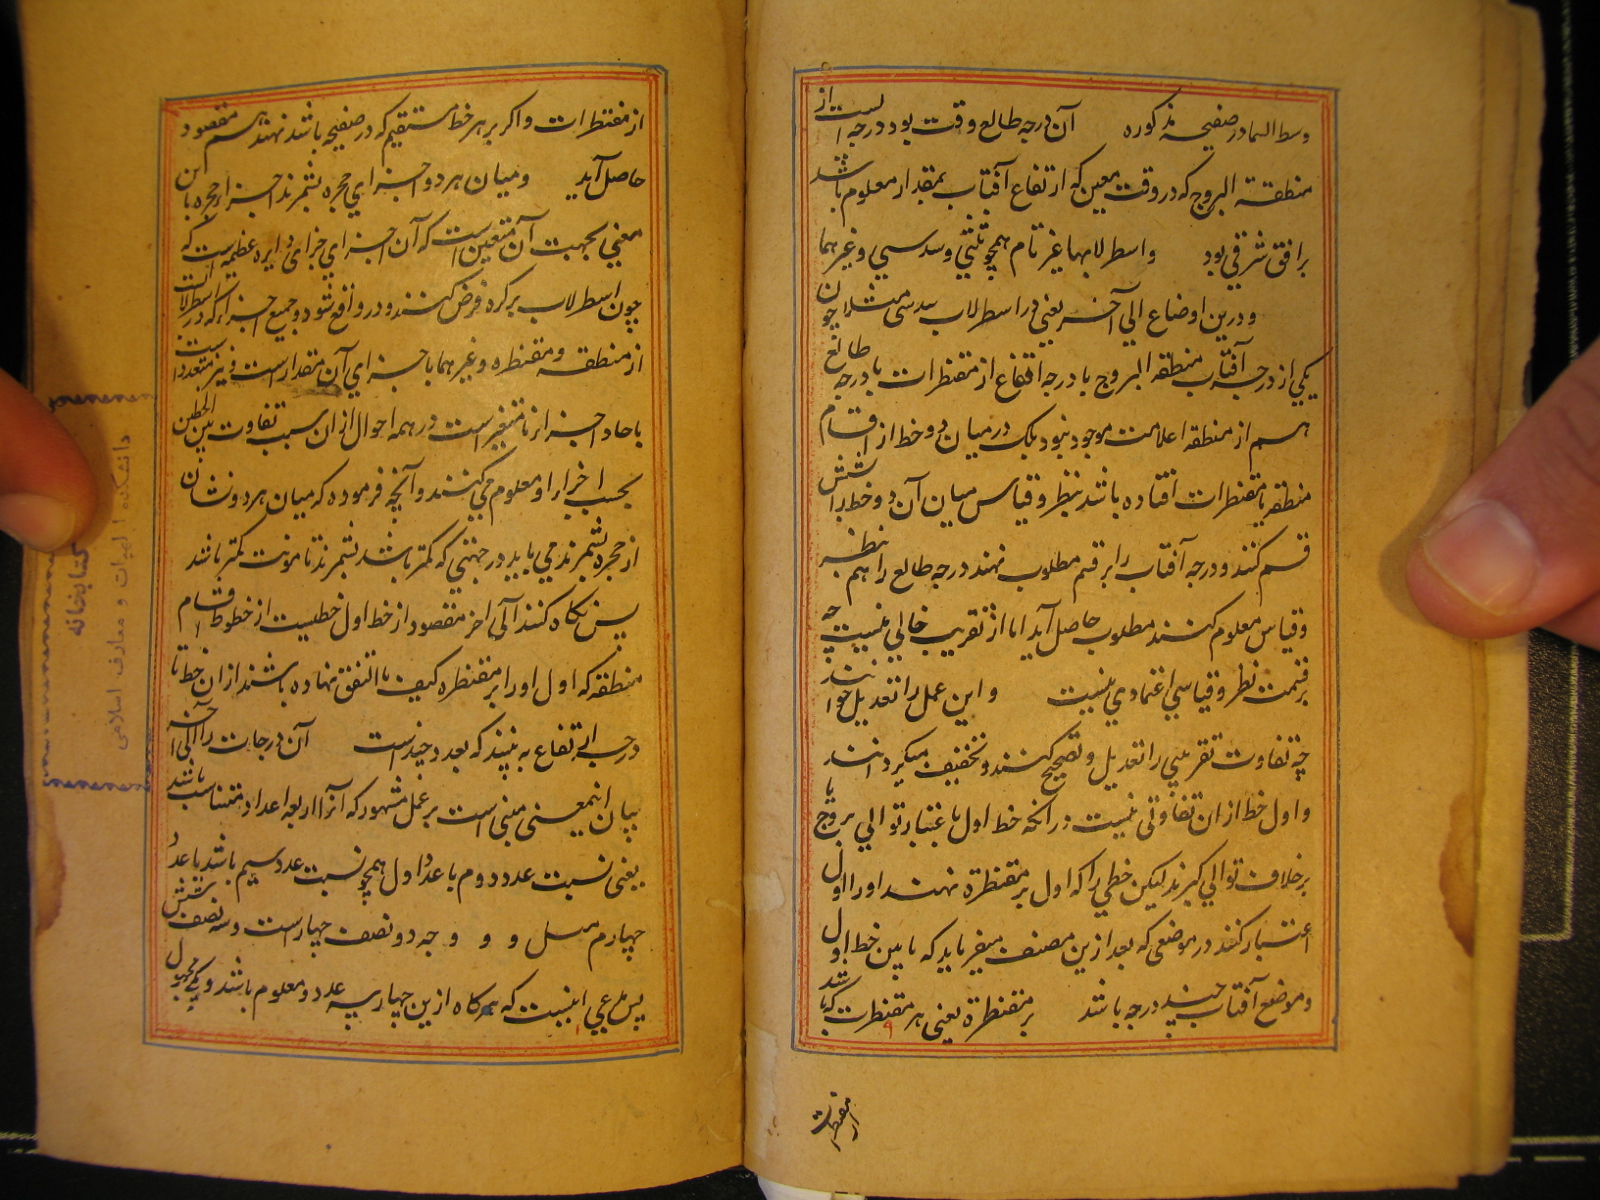 وسط السما در صفیحه مذکوره آن درجه طالع وقت بود درجه است از
منطقة البروج که در وقت معین که ارتفاع آفتاب بمقدار معلوم باشد
برافق شرقی بود واسطرلابهاء غیر تام همچو ثلثی وسدسی وغیرهما
ودرین اوضاع الی آخر یعنی در اسطرلاب سدسی مثلا چون
یکی از درجه آفتاب منطقه البروج با درجه ارتفاع از مقنطرات با درجه طالع
هم از منطقه علامت موجود نبود بلک در میان دو خط از اقسام
منطقه یا مقنطرات افتاده باشد بنظر وقیاس میان آن دو خط را شش
قسم کنند ودرجه آفتاب را بر قسم مطلوب نهند درجه طالع را هم بنظر
وقیاس معلوم کنند مطلوب حاصل آید اما از تقریب خالی نیست چه
بر قسمت نظر وقیاسی اعتمادی نیست واین عمل را تعدیل خوانند
چه تفاوت تقریبی را تعدیل وتصحیح کنند وتخفیف میکردانند
واول خط از ان تفاوتی نیست در انکه خط اول باعتبار توالی بروج یا
برخلاف توالی گیرند لیکن خطی را که اول بر مقنطره نهند اورا اول
اعتبار کنند در موضعی که بعد ازین مصنف میفرماید که مابین خط اول
وموضع آفتاب چند درجه باشد بر مقنطرة یعنی هر مقنطرت که باشد
از مقنطرات
از مقنطرات واکر بر هر خط مستقیم که در صفیحه باشد نهند هم مقصود
حاصل آید ومیان هر دو اجزای حجره بشمرند اجزاء حجره باین
معنی بجهت آن متعین است که آن اجزای جزای دایره عظیمه است که
چون اسطرلاب بر کره فرض کنند ودر واقع شود وجمیع اجزاء که در اسطرلابست
از منطقه ومقنطره وغیرهما باجزای آن مقدار است ونیز متعدد است
باحاد اجزا نامتغیر است در همه احوال ازان سبب تفاوت بین الخطین
بحسب اجزاء او معلوم می کنند وآنچه فرموده که میان هر دو نشان
از حجره بشمرند می باید در جهتی که کمتر باشد بشمرند تا مونت کمتر باشد
پس نکاه کنند الی آخر مقصود از خط اول خطیست از خطوط اقسام
منطقه که اول اورا بر مقنطره کیف ما اتفق نهاده باشند ازان خط تا
درجه ارتفاع به بینند که بعد چند است آن درجات را الی آخر
بیان اینمعنی مبنی است بر عمل مشهور که آنرا اربعه اعداد متناسب باشد
یعنی نسبت عدد دوم با عدد اول همچو نسبت عدد سیم باشد با عدد
چهارم مثل و و و چه دو نصف چهار است وسه نصف شش
پس مدعی اینست که هرکاه ازین چهار سه عدد معلوم باشد ویکی مجهول
کتابخانه
دانشکده الهیات و معارف اسلامی